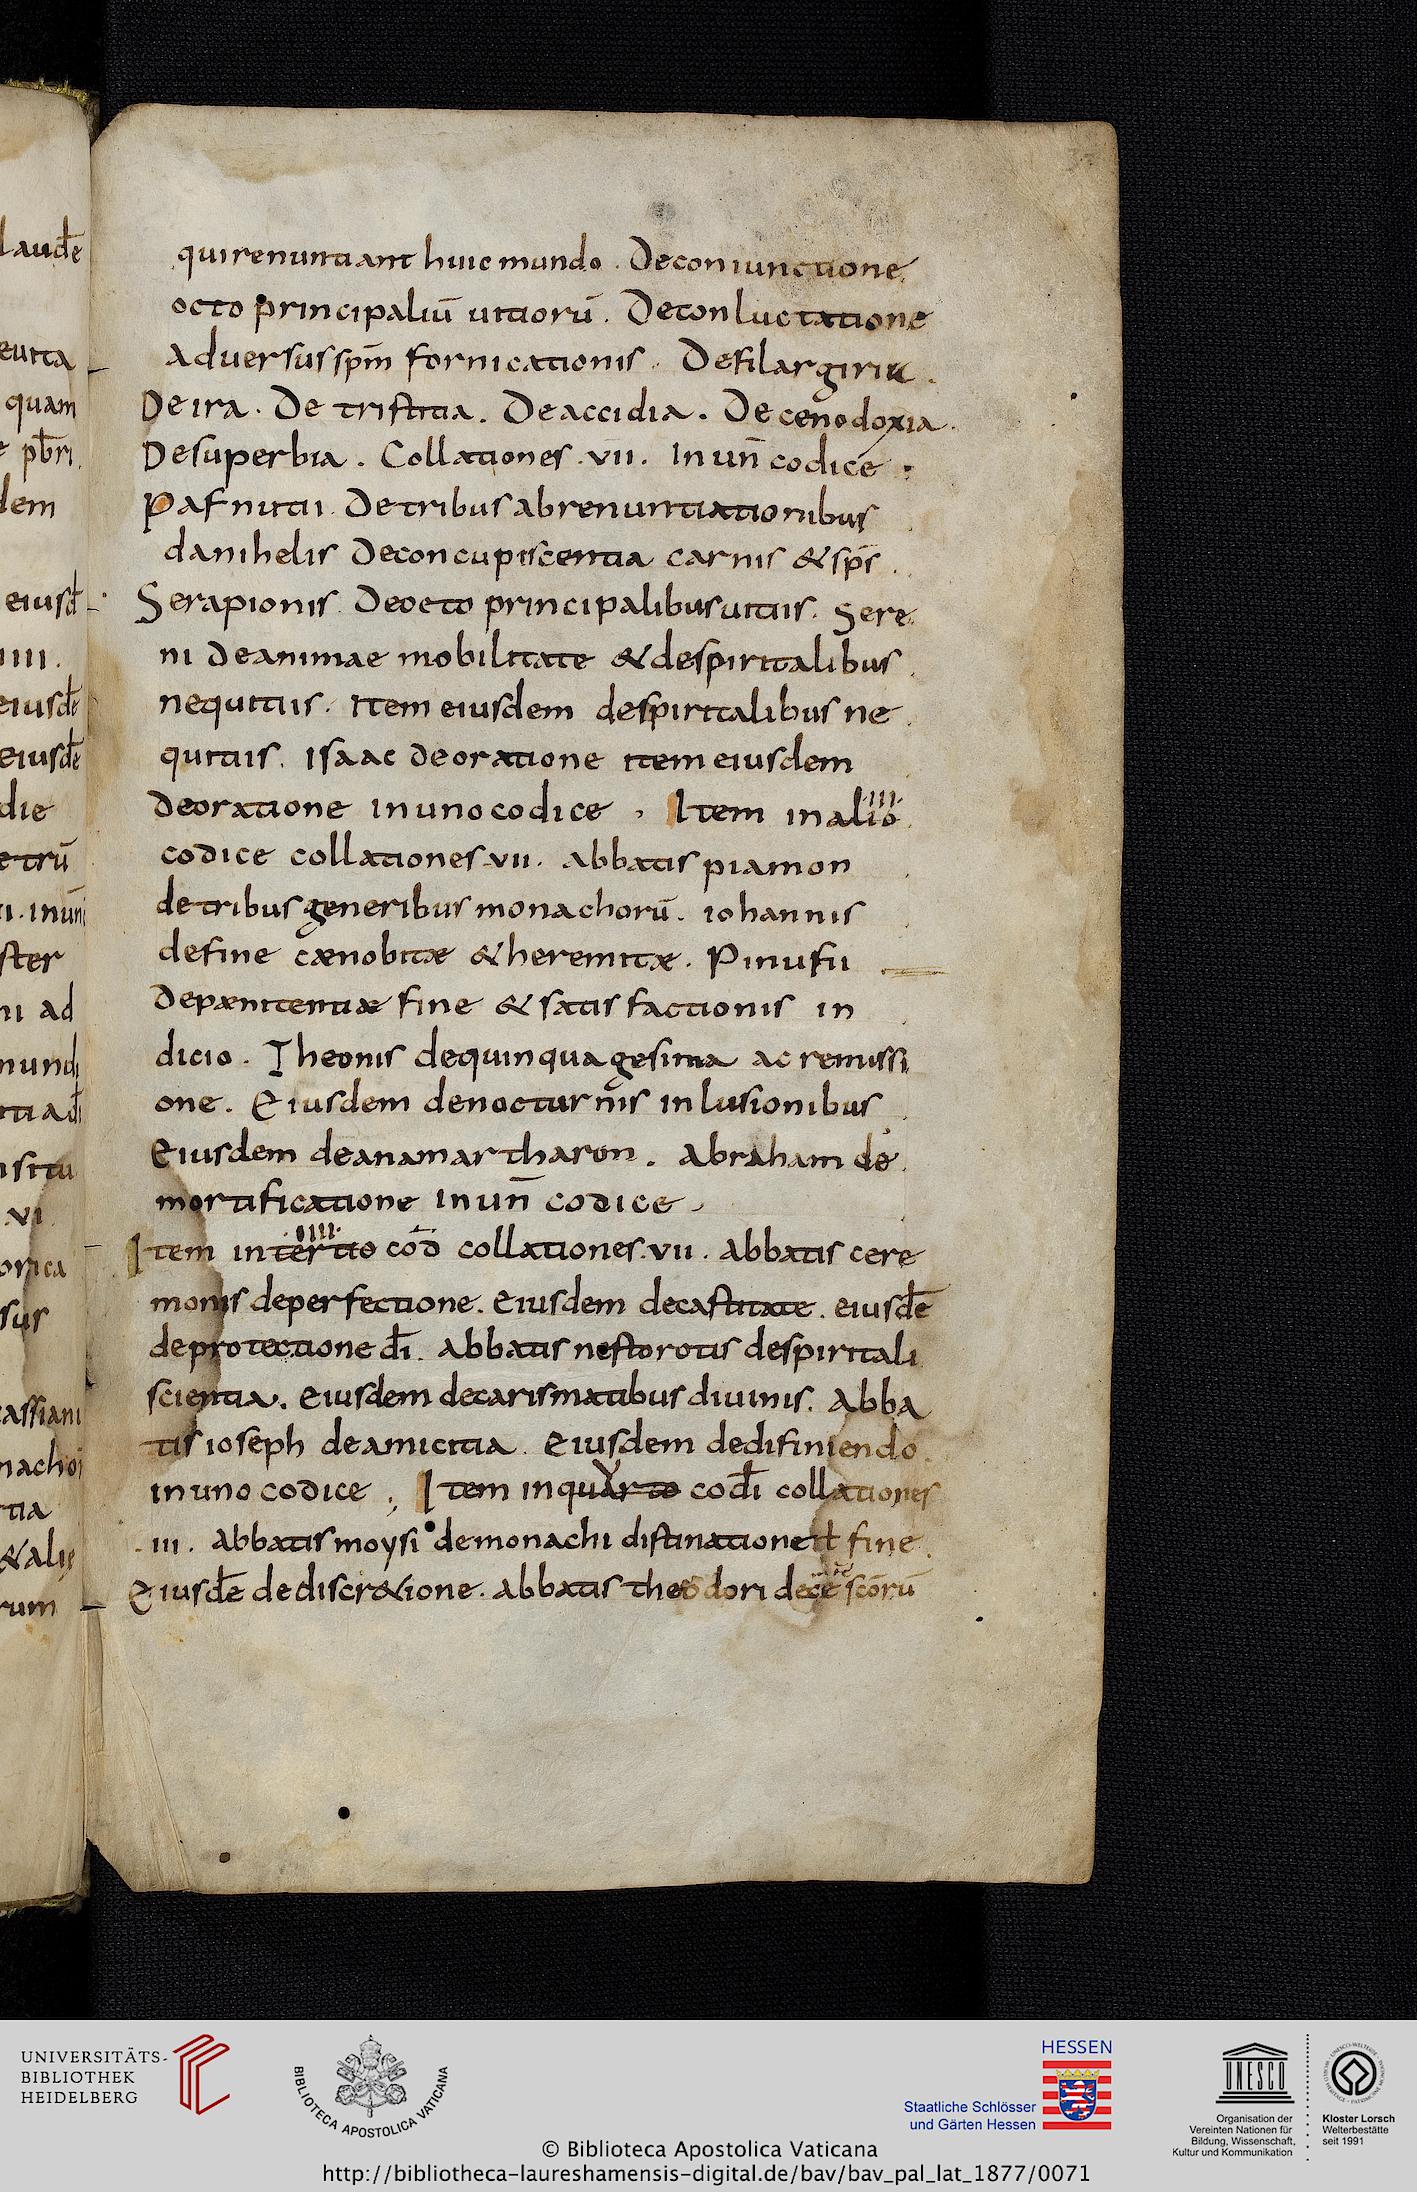 laude
eurta
quam
e pb̄ri
dem
eiusd̄
IIII.
eiusdē
eiusdē
die
etrū
ster
ni ad
mundi
VI
orica
sus
cassiani
nachoī
rtia
&alis
rum
qui renuntiant huic mundo . De coniunctione
octo principaliū uitiorū . De conluctatione
aduersus sp̄m fornicationis . De filargiria .
De ira . De tristitia . De accidia . De cenodoxia .
De superbia . Collationes .VII. In un̄ codice :
Pafnutii De tribus abrenuntiationibus
danihelis De concupiscentia carnis & sp̄s .
Serapionis De octo principalibus uitiis . Sere
ni De animae mobilitate & de spiritalibus
nequitiis . Item eiusdem de spiritalibus ne
quitiis . Isaac de oratione item eiusdem
De oratione in uno codice , Item in alio III
codice collationes .VII. abbatis piamon
de tribus generibus monachorū . iohannis
de fine cænobitæ & heremitæ . Pinufii
De pænitentiæ fine & satisfactionis in
dicio . Theonis de quinquagesima ac remissi
one . Eiusdem de nocturnis inlusionibus
Eiusdem de anamartharon . Abraham de
mortificatione In un̄ codice ,
Item in tertio IIII cōd collationes .VII. abbatis cere
monis de perfectione . Eiusdem de castitate . eiusdē
de protectione dī . abbatis nestorotis de spiritali
scientia . Eiusdem de carismatibus diuinis . Abba
tis ioseph de amicitia . Eiusdem de difiniendo
in uno codice ; Item in quarto V cod̄i collationes
.III. abbatis moysi de monachi distinatione ł fine .
Eiusdē de discr&ione . abbatis theodori de cē sc̄orū
UNIVERSITÄTS-
BIBLIOTHEK
HEIDELBERG
BIBLIOTECA APOSTOLICA VATICANA
HESSEN
Staatliche Schlösser
und Gärten Hessen
UNESCO
Organisation der
Vereinten Nationen für
Bildung, Wissenschaft,
Kultur und Kommunikation
Kloster Lorsch
Welterbestätte
seit 1991
© Biblioteca Apostolica Vaticana
http://bibliotheca-laureshamensis-digital.de/bav/bav_pal_lat_1877/0071